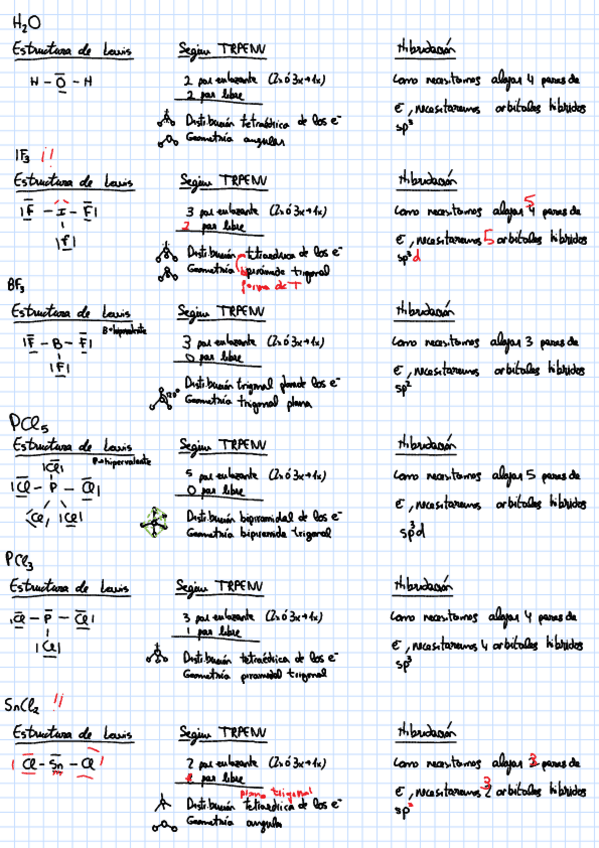 H2O
Estructura de Lewis Según TRPENV Hibridación
H - O - H
2 par enlazante (2x ó 3x→1x)
2 par libre
Distribución tetraédrica de los e-
Geometría angular
Como necesitamos alojar 4 pares de
e-, necesitaremos orbitales híbridos
sp3
IF3 ¡!
Estructura de Lewis Según TRPENV Hibridación
F - I - F
F
3 par enlazante (2x ó 3x→1x)
2 par libre
Distribución tetraédrica de los e-
Geometría pirámide trigonal
forma de T
Como necesitamos alojar 4 5 pares de
e-, necesitaremos 5 orbitales híbridos
sp3d
BF3
Estructura de Lewis Según TRPENV Hibridación
B=hipovalente
F - B - F
F
3 par enlazante (2x ó 3x→1x)
0 par libre
Distribución trigonal plana de e-
Geometría trigonal plana
120°
Como necesitamos alojar 3 pares de
e-, necesitaremos orbitales híbridos
sp2
PCl5
Estructura de Lewis Según TRPENV Hibridación
P=hipervalente
Cl
Cl - P - Cl
Cl, Cl
5 par enlazante (2x ó 3x→1x)
0 par libre
Distribución bipiramidal de los e-
Geometría bipiramide trigonal
Como necesitamos alojar 5 pares de
e-, necesitaremos orbitales híbridos
sp3d
PCl3
Estructura de Lewis Según TRPENV Hibridación
Cl - P - Cl
Cl
3 par enlazante (2x ó 3x→1x)
1 par libre
Distribución tetraédrica de los e-
Geometría piramidal trigonal
Como necesitamos alojar 4 pares de
e-, necesitaremos 4 orbitales híbridos
sp3
SnCl2 !!
Estructura de Lewis Según TRPENV Hibridación
Cl - Sn - Cl
2 par enlazante (2x ó 3x→1x)
par libre
plana trigonal
Distribución tetraédrica de los e-
Geometría angular
Como necesitamos alojar 3 pares de
e-, necesitaremos 3 2 orbitales híbridos
sp